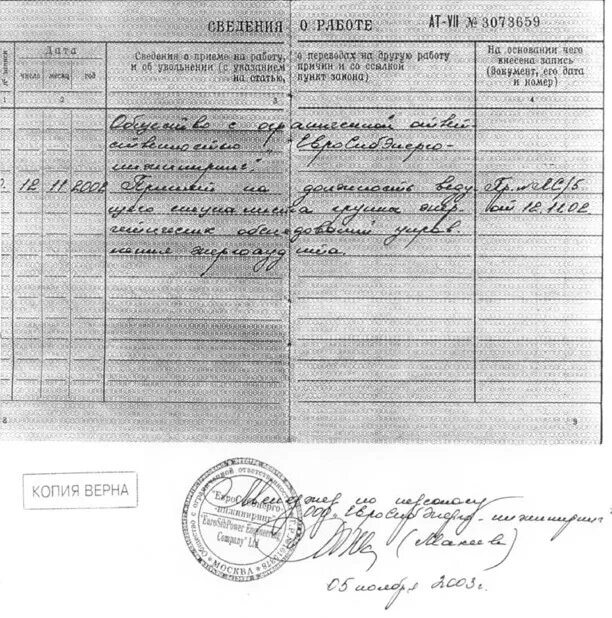 СВЕДЕНИЯ О РАБОТЕ АТ-VII № 3073659
Дата
число месяц год
Сведения о приеме на работу, о переводах на другую работу
и об увольнении (с указанием причин и со ссылкой
на статью, пункт закона)
На основании чего
внесена запись
(документ, его дата
и номер)
1 2 3 4
Общество с ограниченной ответ-
ственностью "ЕвроСибЭнерго-
инжиниринг".
12 11 2002 Принят на должность веду-
щего специалиста группы энер-
гетических обследований управ-
ления энергоаудита.
Пр. № ЛС/5
от 12.11.02.
8 9
КОПИЯ ВЕРНА
Общество с ограниченной ответственностью
"ЕвроСибЭнерго
-инжиниринг"
"EuroSibPower Engineering
Company" Ltd
МОСКВА
Менеджер по персоналу
ООО "ЕвроСибЭнерго-инжиниринг"
05 ноября 2003г.